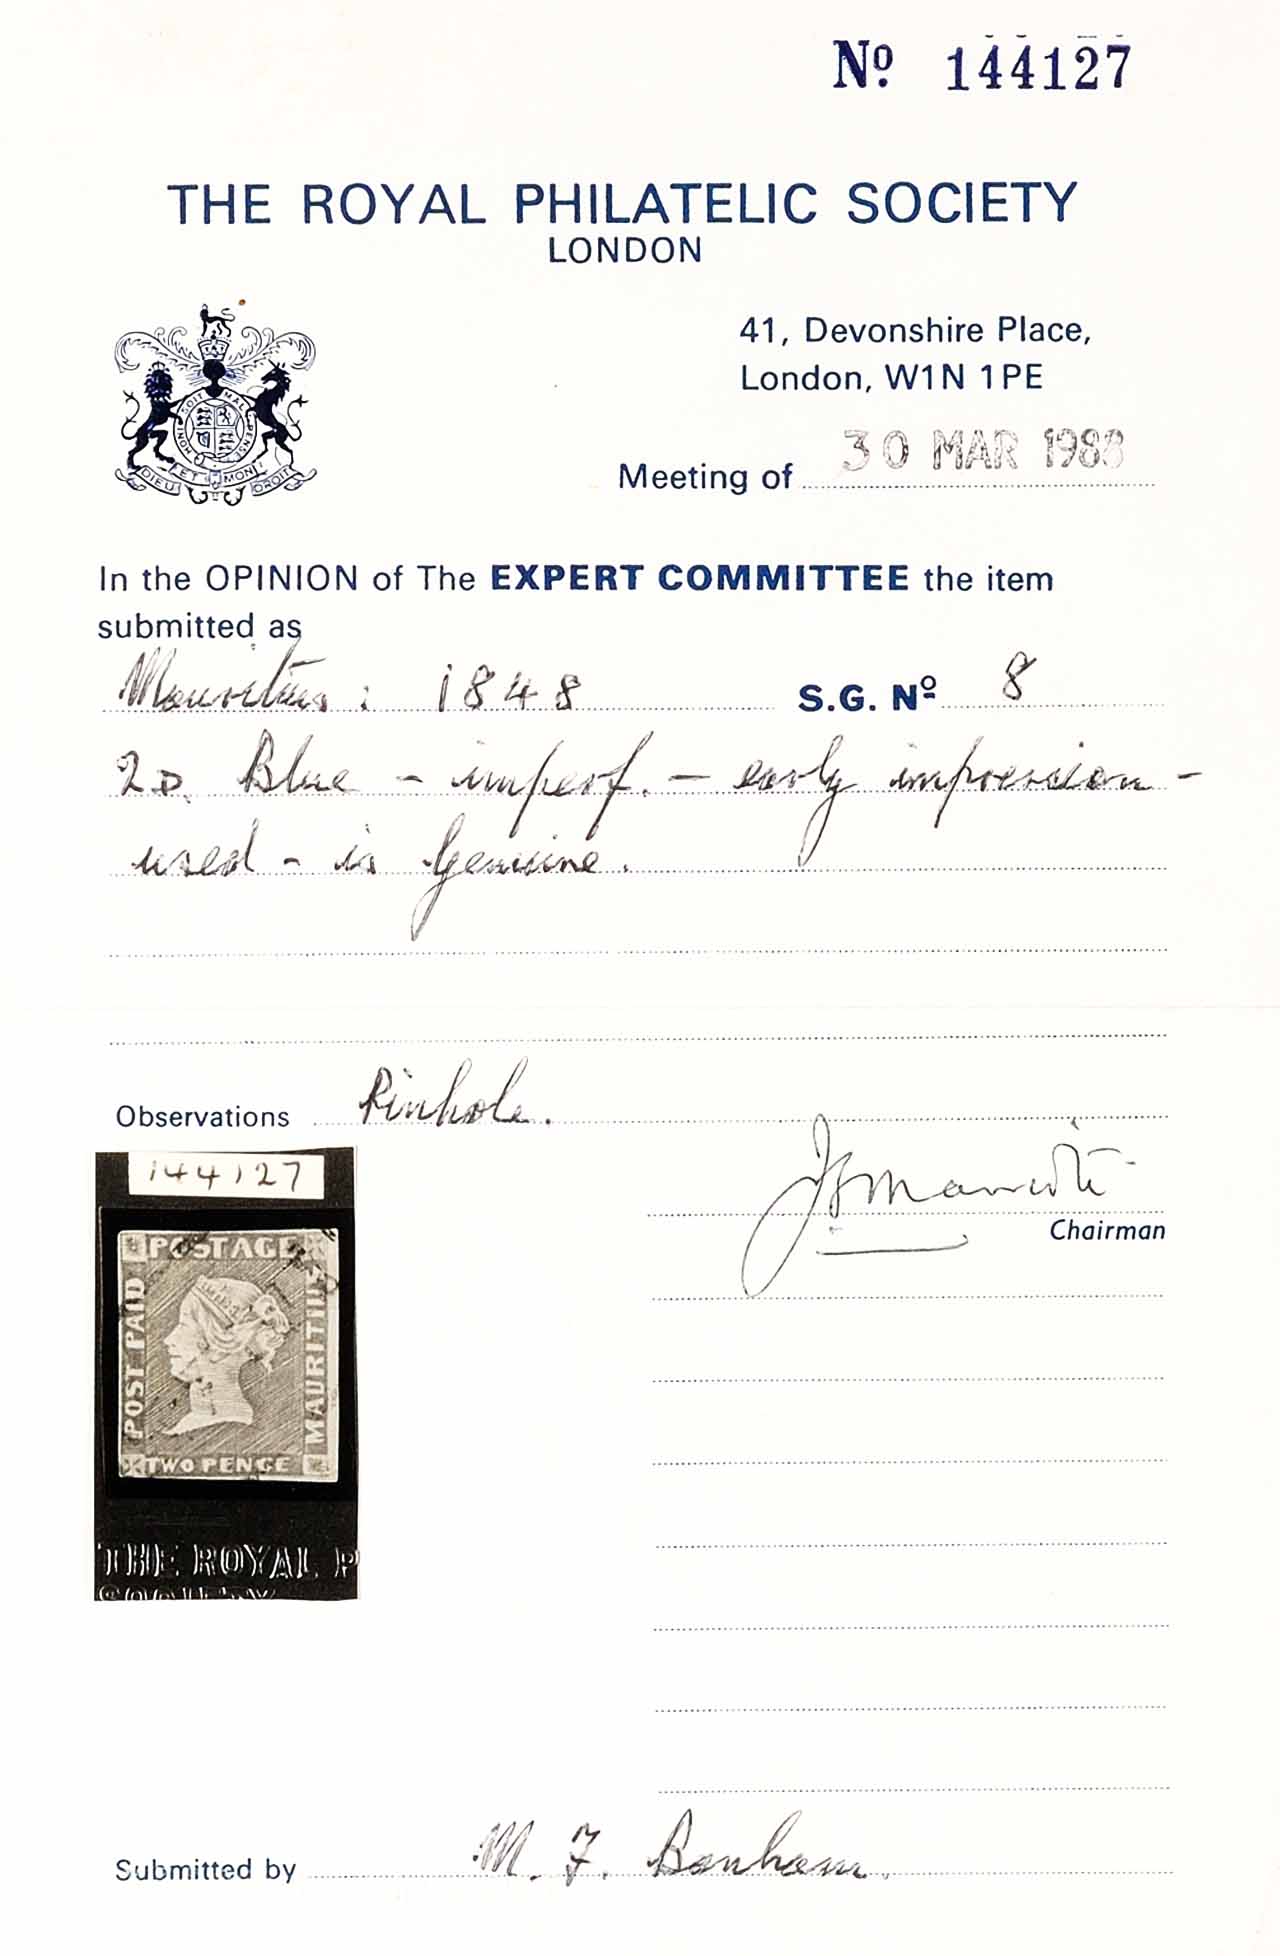 Nº 144127
THE ROYAL PHILATELIC SOCIETY
LONDON
41, Devonshire Place,
London, W1N 1PE
HONI SOIT QUI MAL Y PENSE
DIEU ET MON DROIT
Meeting of 30 MAR 1988
In the OPINION of The EXPERT COMMITTEE the item
submitted as
Mauritius: 1848 S.G. Nº 8
2D. Blue - imperf. - early impression -
used - is Genuine.
Observations Pinhole.
144127
POSTAGE
POST PAID
MAURITIUS
TWO PENCE
THE ROYAL P
SOCIETY
Chairman
Submitted by M. F. Bonham.